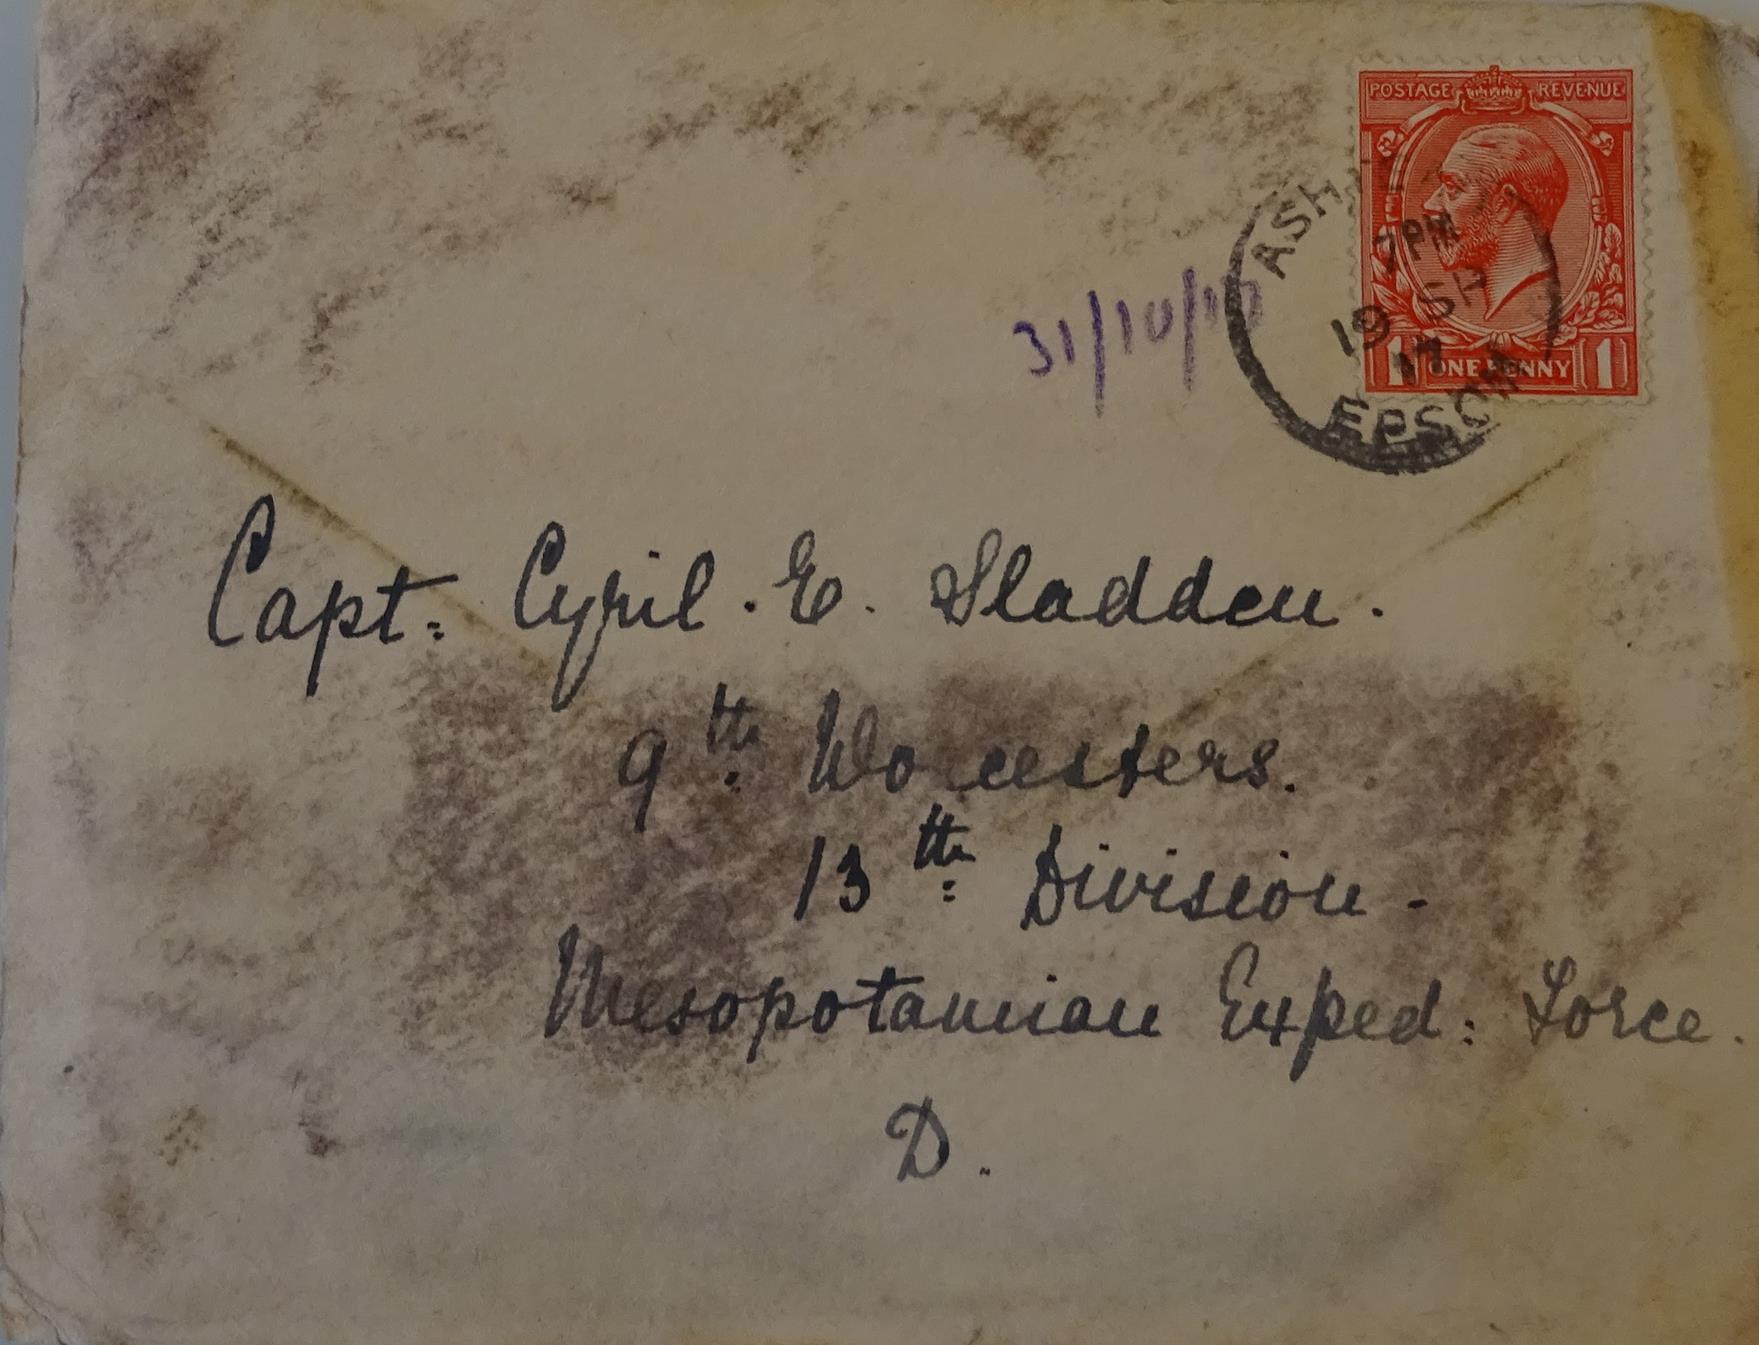 POSTAGE REVENUE
ASH
7 PM
19 SP
17
EPSOM
1 ONE PENNY 1
31/10/17
Capt. Cyril. E. Sladden.
9th Worcesters.
13th Division.
Mesopotamian Exped: Force.
D.